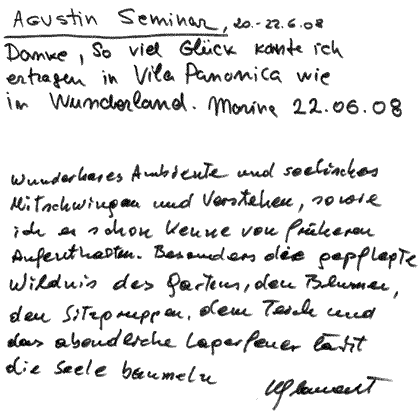 Agustin Seminar, 20.-22.6.08
Danke, So viel Glück konte ich
ertragen in Vila Panonica wie
in Wunderland. Morina 22.06.08
Wunderbares Ambiente und seelisches
Mitschwingen und Verstehen, sowie
ich es schon kenne von früheren
Aufenthalten. Besonders die gepflegte
Wildnis des Gartens, den Blumen,
den Sitzgruppen, dem Teich und
das abendliche Lagerfeuer läßt
die Seele baumeln